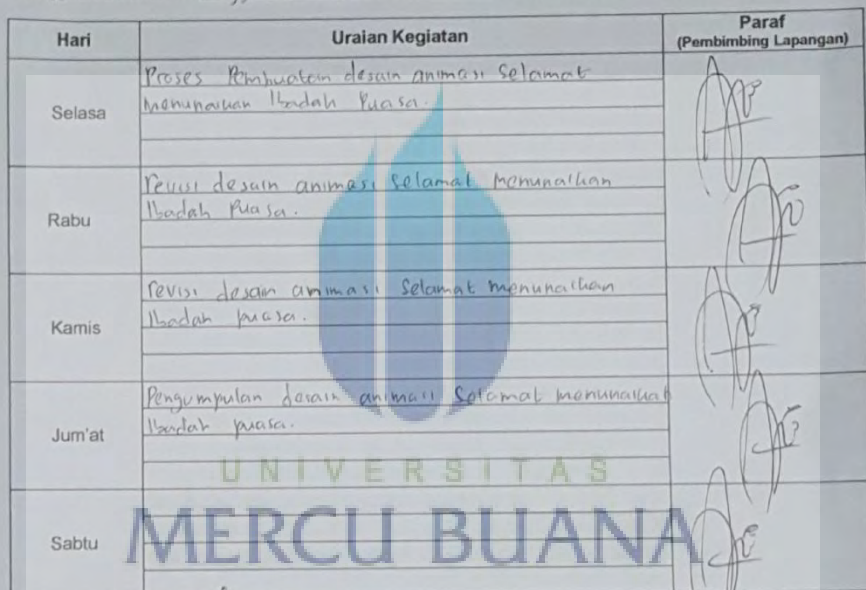 Hari Uraian Kegiatan Paraf
(Pembimbing Lapangan)
Proses Pembuatan desain animasi Selamat
Selasa Menunaikan Ibadah Puasa.
revisi desain animasi selamat menunaikan
Rabu Ibadah Puasa.
revisi desain animasi selamat menunaikan
Kamis Ibadah puasa.
Pengumpulan desain animasi Selamat menunaikan
Jum'at Ibadah puasa.
UNIVERSITAS
Sabtu MERCU BUANA